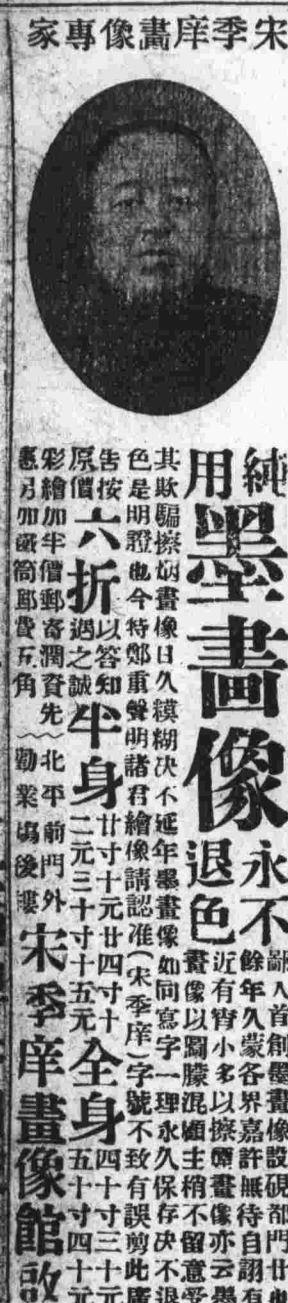 宋季庠畫像專家
純用墨畫像永不退色
鄙人首創墨畫像設硯都門廿
餘年久蒙各界嘉許無待自詡
近有宵小多以擦
畫像亦云墨
畫像以
朦混顧主稍不留意受
其欺騙擦炳畫像日久糢糊决不延年墨畫像如同寫字一理永久保存决不退
色是明證也今特鄭重聲明諸君繪像請認准(宋季庠)字號不致有誤剪此廣
告按原價六折以答知遇之誠
半身 廿寸十元廿四寸十二元三十寸十五元
全身 四十寸三十元五十寸四十元
彩繪加半價郵寄潤資先惠另加
筒郵費五角
北平前門外勸業塲後
宋季庠畫像館啟